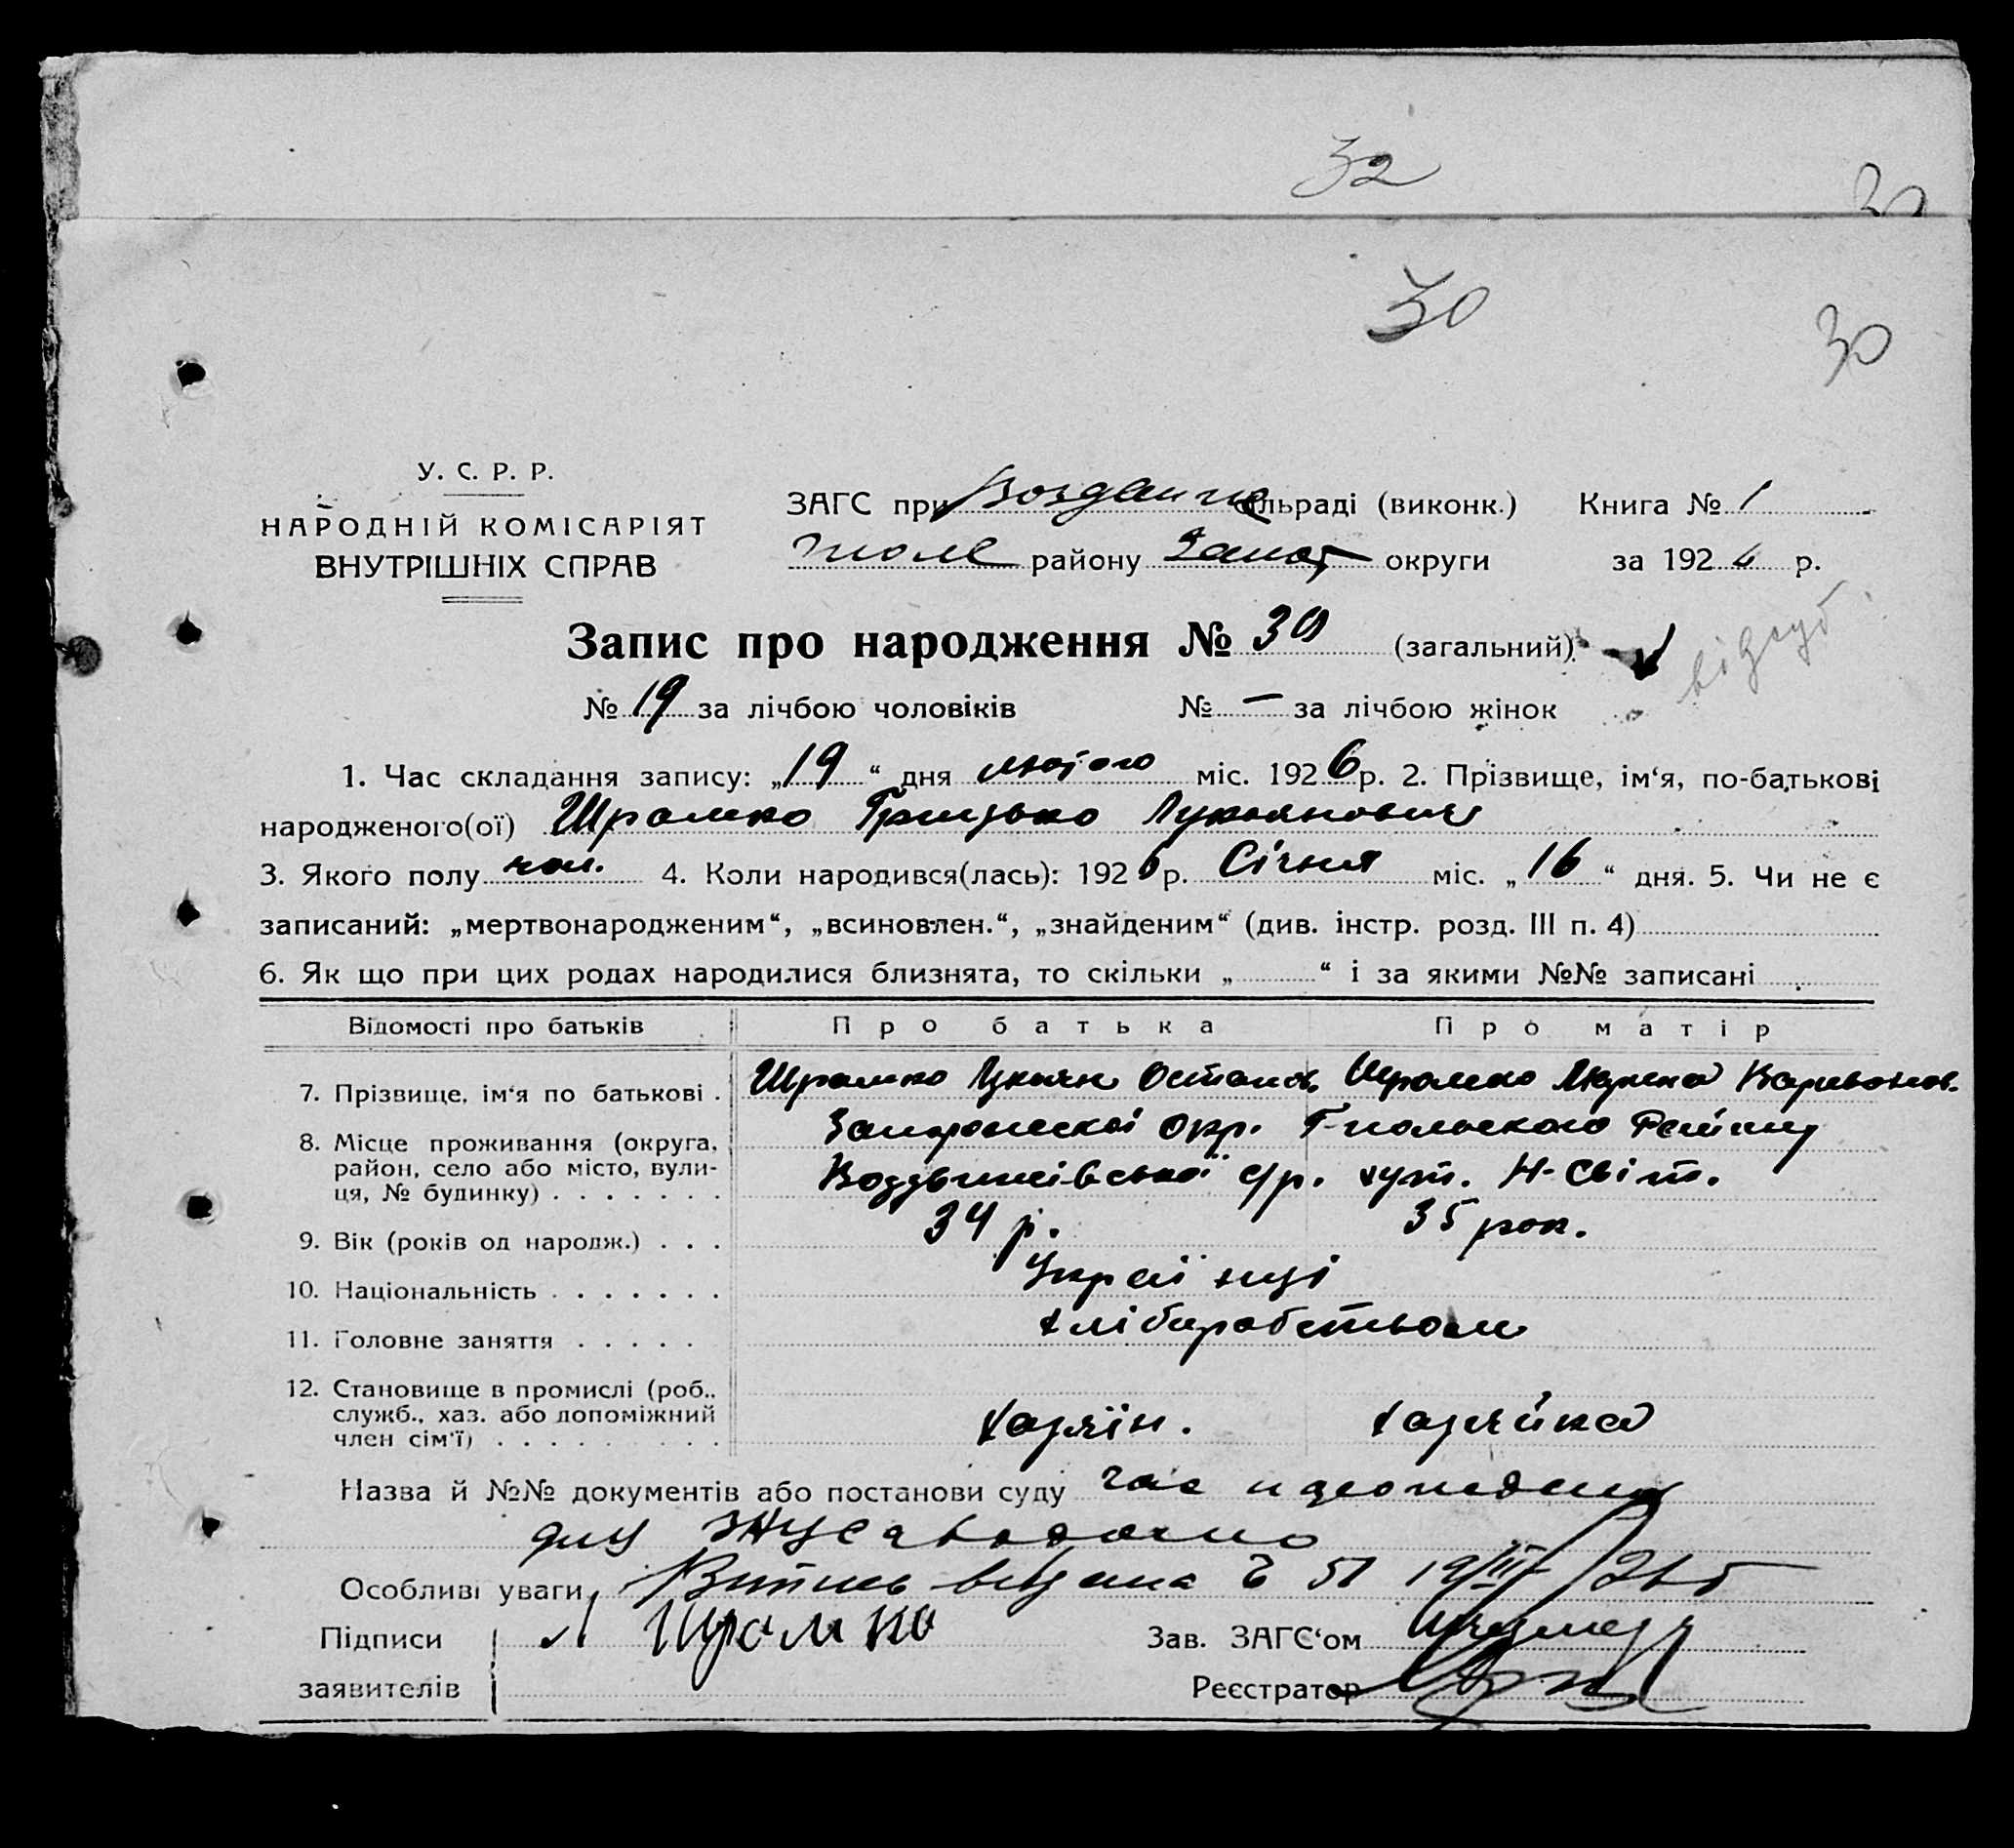 32
30
30
У. С. Р. Р.
НАРОДНІЙ КОМІСАРІЯТ
ВНУТРІШНІХ СПРАВ
ЗАГС при сільраді (виконк.) Книга № 1
району Запор округи за 1926 р.
Запис про народження № 30 (загальний)
відсут
№ 19 за лічбою чоловіків № — за лічбою жінок
1. Час складання запису: „19“ дня лютого міс. 1926 р. 2. Прізвище, ім‘я, по-батькові
народженого(ої) Шрамко Грицько Лукьянович
3. Якого полу чол. 4. Коли народився(лась): 1926 р. Січня міс. „16“ дня. 5. Чи не є
записаний: „мертвонародженим“, „всиновлен.“, „знайденим“ (див. інстр. розд. III п. 4)
6. Як що при цих родах народилися близнята, то скільки „ “ і за якими №№ записані
Відомості про батьків Про батька Про матір
7. Прізвище, ім‘я по батькові . Шрамко Лукьян Остапов. Шрамко Марина
8. Місце проживання (округа, Запорожскої Окр. Г-польского Району
район, село або місто, вули- Воздвиженівської с/р. хут. Н-Світ.
ця, № будинку) . . . . . . .
9. Вік (років од народж.) . . . 34 р. 35 рок.
10. Національність . . . . . . . Українці
11. Головне заняття . . . . . хліборобством
12. Становище в промислі (роб.,
служб., хаз. або допоміжний хазяїн. хазяйка
член сім‘ї) . . . . . . . . .
Назва й №№ документів або постанови суду
Особливі уваги Витись видана 51 19/III
Підписи Л Шрамко Зав. ЗАГС‘ом
заявителів Реєстратор